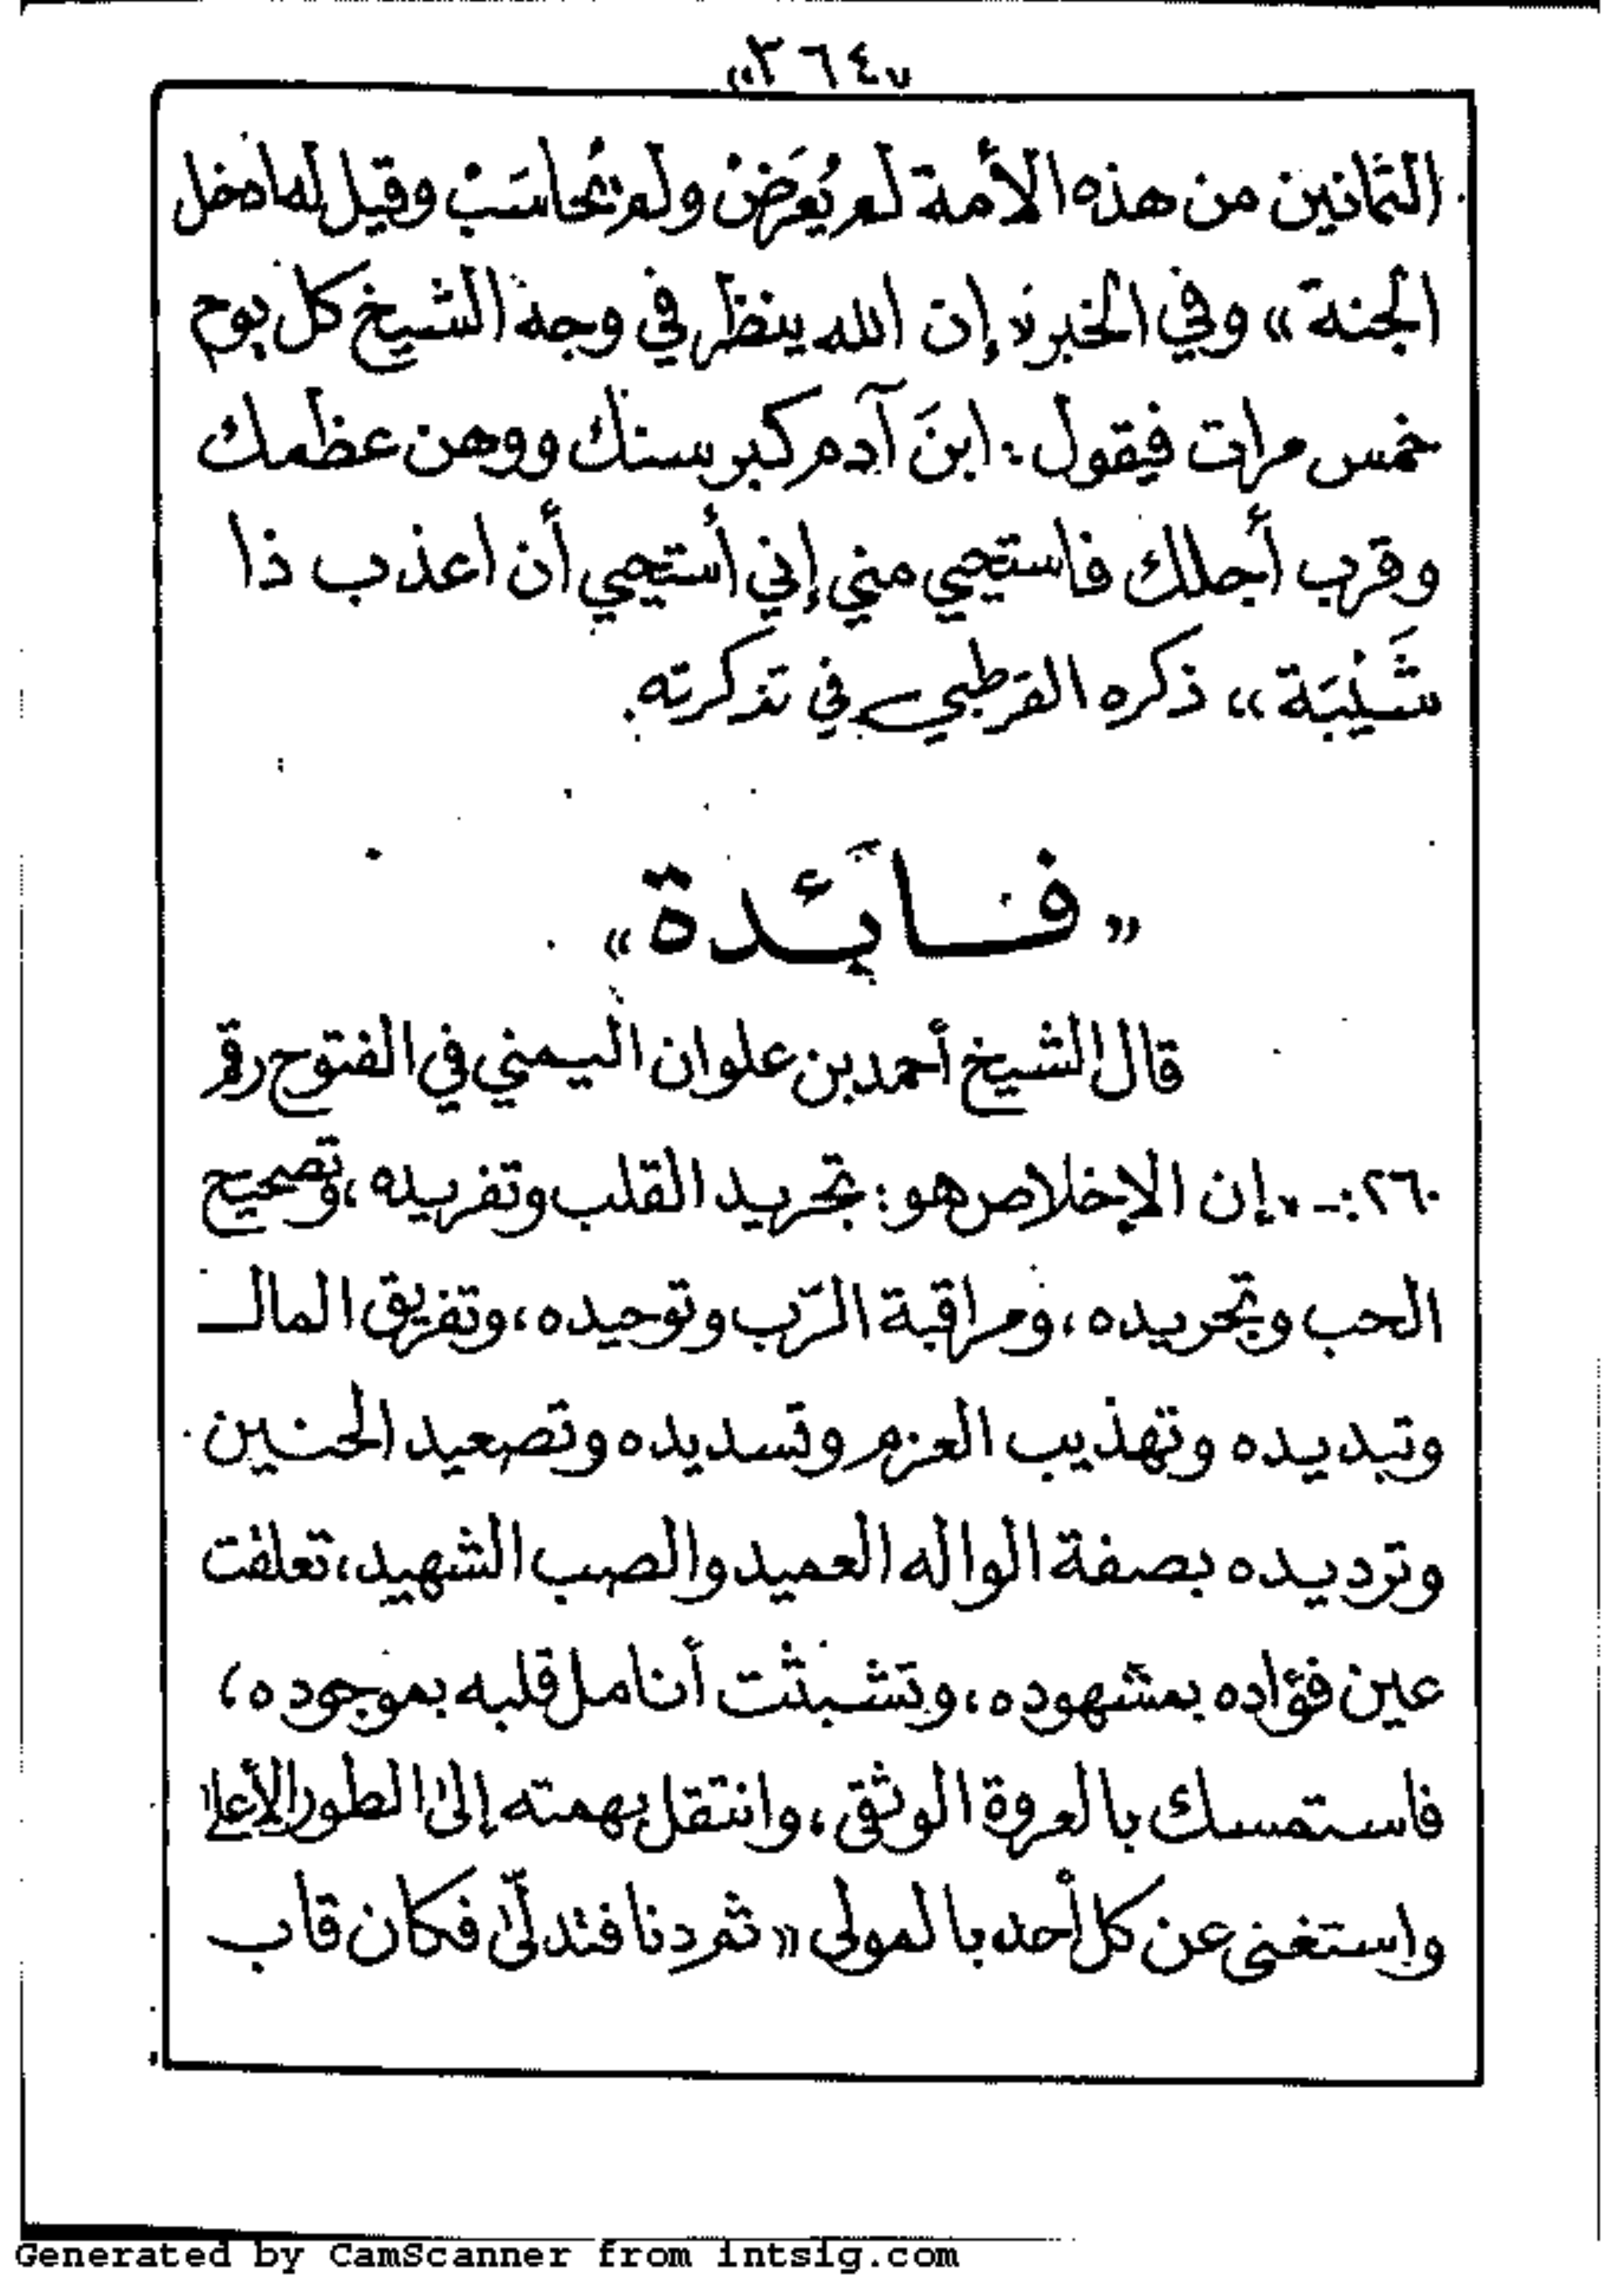 «٣٦٤»
الثمانين من هذه الأمة لم يُعرَضْ ولم يُحاسَبْ وقيل له ادخل
الجنة» وفي الخبر: «إن الله ينظر في وجه الشيخ كل يوم
خمس مرات فيقول: ابنَ آدم كبر سنك ووهن عظمك
وقرب أجلك فاستحيي مني إني أستحيي أن اعذب ذا
شَيْبَة» ذكره القرطبي في تذكرته.
«فائدة»
قال الشيخ أحمد بن علوان اليمني في الفتوح رقم
٢٦٠:- إن الإخلاص هو: تجريد القلب وتفريده، وتصحيح
الحب وتجريده، ومراقبة الرّب وتوحيده، وتفريق المال
وتبديده وتهذيب العزم وتسديده وتصعيد الحنين
وترديده بصفة الواله العميد والصب الشهيد، تعلقت
عين فؤاده بمشهوده، وتشبثت أنامل قلبه بموجوده،
فاستمسك بالعروة الوثقى، وانتقل بهمته إلى الطور الأعلى
واستغنى عن كل أحد بالمولى «ثم دنا فتدلّى فكان قاب
Generated by CamScanner from intsig.com